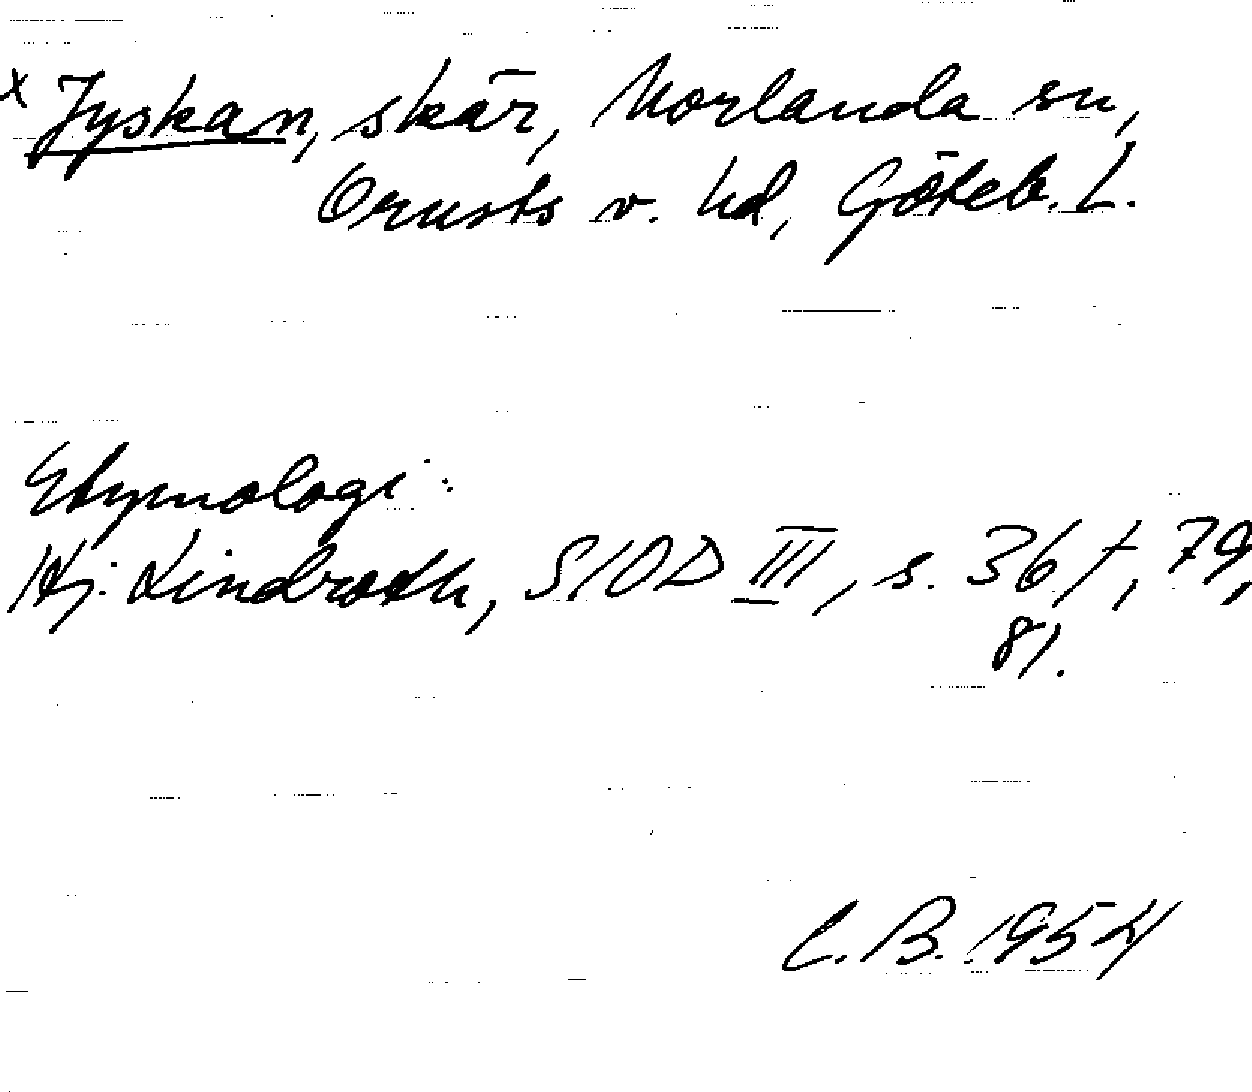 x Jyskan, skär, Morlanda sn,
Orusts v. hd, Göteb. L.
Etymologi:
Hj. Lindroth, SIOD III, s. 36 f, 79,
81.
C.B. 1954